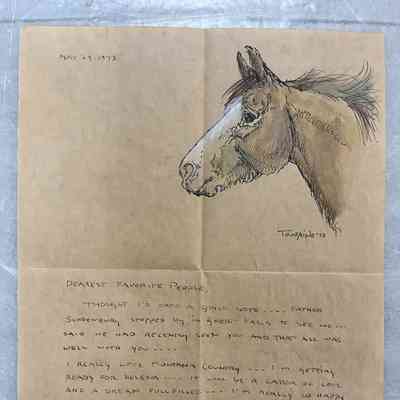 MAY 29, 1973
TOURAINE '73
DEAREST FAVORITE PEOPLE,
THOUGHT I'D DROP A QUICK NOTE.... FATHER
STOPPED BY IN GREAT FALLS TO SEE ME...
SAID HE HAD RECENTLY SEEN YOU AND THAT ALL WAS
WELL WITH YOU....
I REALLY LOVE MONTANA COUNTRY.... I'M GETTING
READY FOR HELENA.... IT WILL BE A LABOR OF LOVE
AND A DREAM FULFILLED.... I'M REALLY SO HAPPY